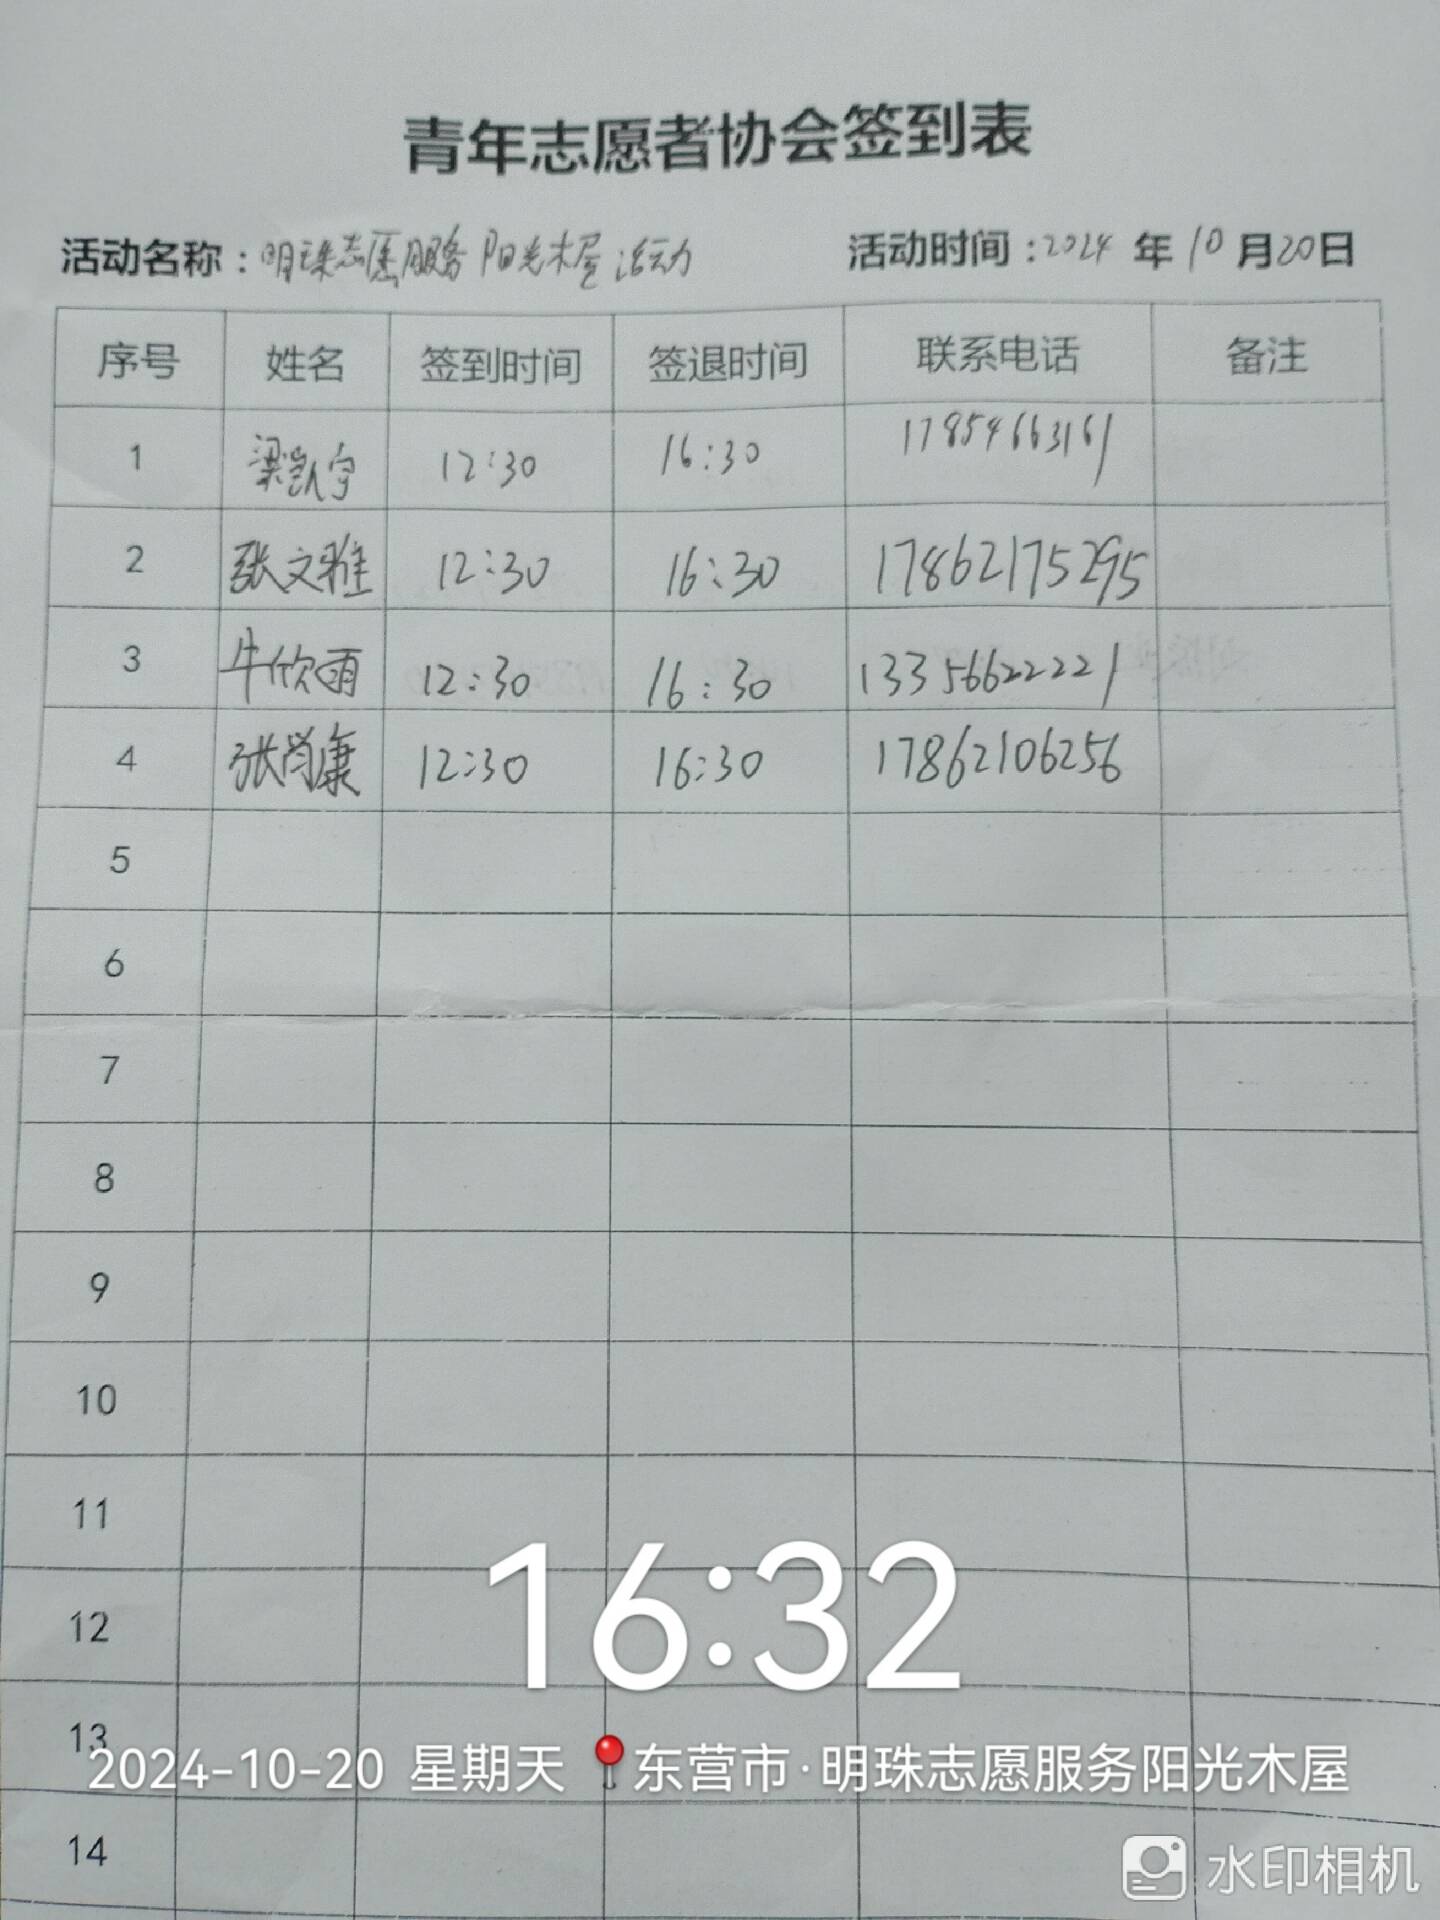 青年志愿者协会签到表
活动名称：明珠志愿服务阳光木屋活动 活动时间：2024年10月20日
序号 姓名 签到时间 签退时间 联系电话 备注
1 梁凯宇 12:30 16:30 17854663161
2 张文雅 12:30 16:30 17862175295
3 牛欣雨 12:30 16:30 13356622221
4 张尚康 12:30 16:30 17862106256
5
6
7
8
9
10
11
16:32
12
13
2024-10-20 星期天 东营市·明珠志愿服务阳光木屋
14
水印相机